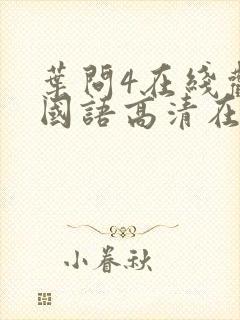 葉問4在綫
國語高清在
小春秋